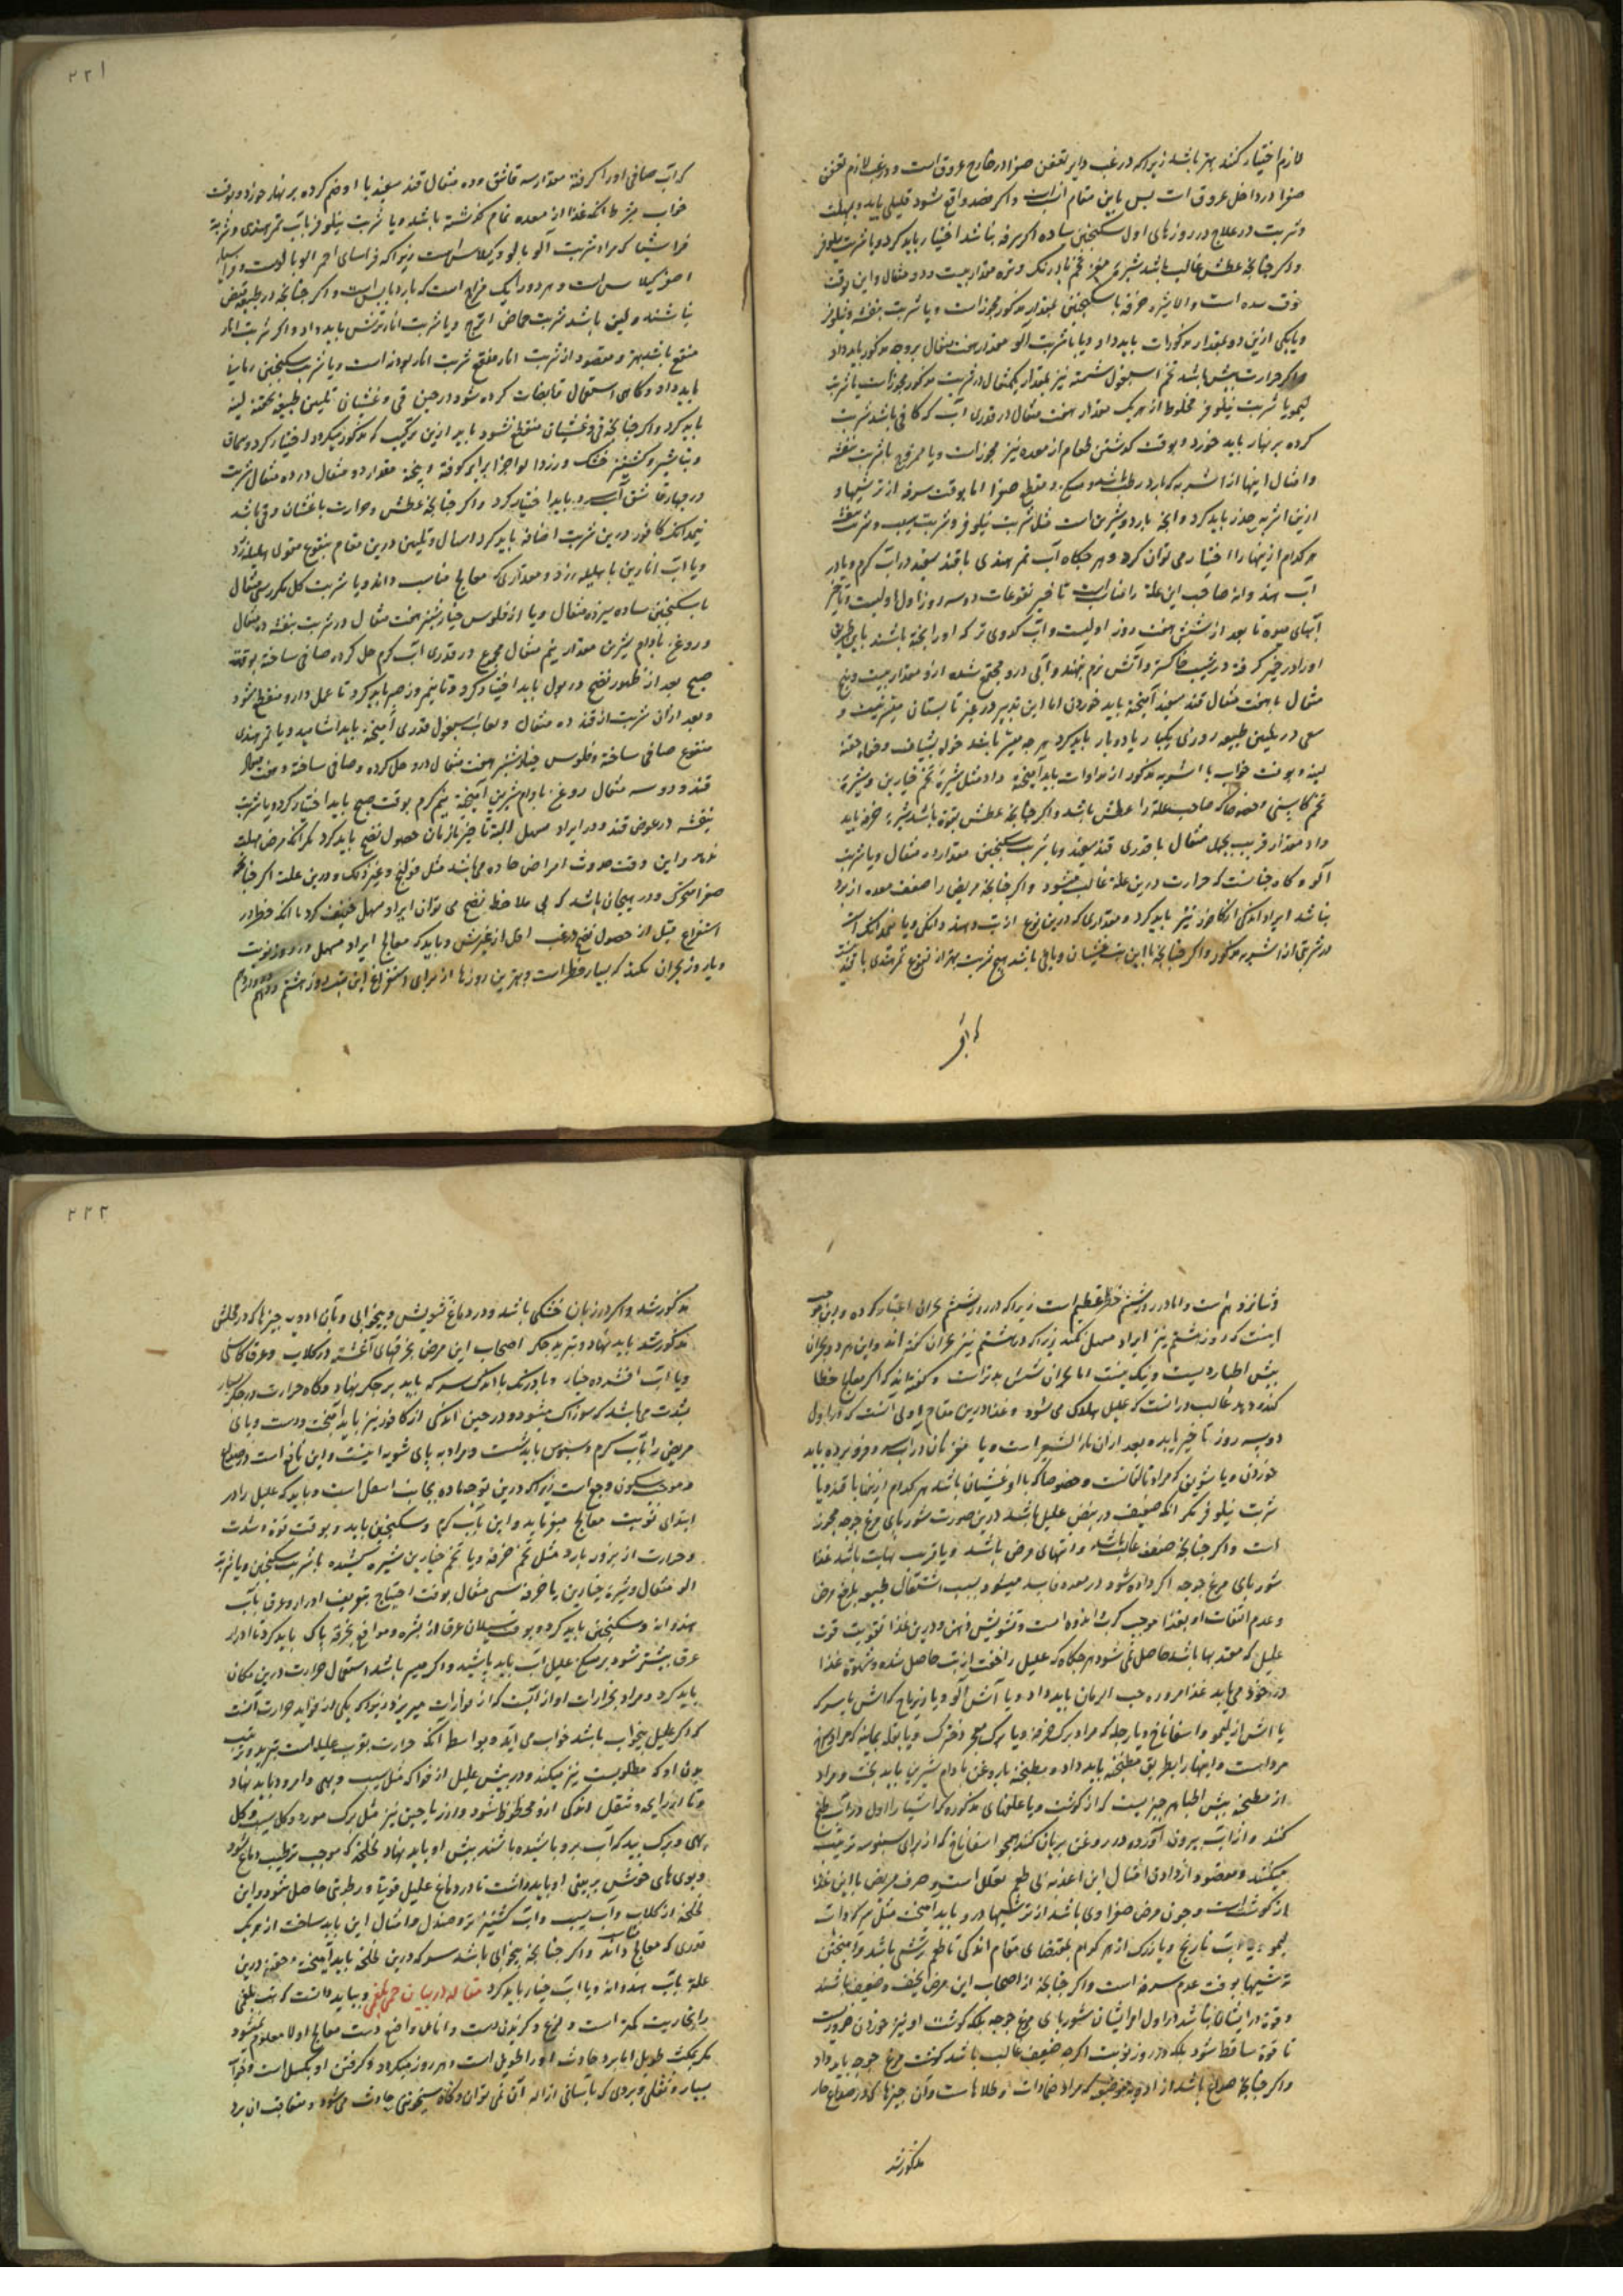 لازم اختیار کنند بهتر باشد زیرا که در غب دایر تعفن صفرا در خارج عروق است و در غب لازم تعفن
صفرا در داخل عروق است پس باین مقام انسب است و اکر فصد واقع شود قلیلی باید و بمهلت
و شربت در علاج در روزهای اول سکنجبین ساده اکر سرفه نباشد اختیار باید کرد و یا شربت نیلوفر
و اکر چنانچه عطش غالب باشد شیره مغز تخم بادرنک و تره مقدار بیست و دو مثقال و این
شده است و الا شیره خرفه با سکنجبین بمقدار مذکور مجوز است و یا شربت بنفشه و نیلوفر
و یا یکی ازین دو بمقدار مذکورات باید داد و یا با شربت آلو مقدار هفت مثقال بر وجه مذکور باید داد
و اکر حرارت بیش باشد تخم اسبغول شسته نیز بمقدار یکمثقال در شربت مذکور مجوز است یا شربت
لیمو یا شربت نیلوفر مخلوط از هر یک مقدار هفت مثقال در قدری آب که کافی باشد شربت
کرده بر نهار باید خورد و بوقت کذشتن طعام از معده نیز مجوز است و یا ممزوج با شربت بنفشه
و امثال اینها از اشربه که بارد رطب باشد و مسکن و مقطع صفرا اما بوقت سرفه از ترشیها و
ازین اشربه حذر باید کرد و انچه بارد و شیرین است مثل شربت نیلوفر و شربت سیب و شربت بنفشه
هر کدام ازینها را اختیار می توان کرد و هر جکاه آب تمر هندی با قند سفید در آب کرم و یا در
آب هندوانه صاحب این علة را مناسب است تا خیر نقوعات دو سه روز اول اولیست و تاخیر
آبهای میوه تا بعد از شش هفت روز اولیست و آب کدوی تر که او را پخته باشند باین طریق
او را در خمیر کرفته در شیب خاکستر و آتش نرم نهند و آبی درو مجتمع شده ازو مقدار بیست و پنج
مثقال با هفت مثقال قند سفید آمیخته باید خوردن اما این تدبیر در غیر تابستان میسر نیست و
سعی در تلیین طبیعه روزی یکبار یا دو بار باید کرد بهر چه میسر باشد خواه بشیاف و خواه حقنه
لینه و بوقت خواب با اشربه مذکور از مداوات باید آمیخته داد مثل شیره تخم خیارین و شیره
تخم کاسنی خصوصا که صاحب علة را عطش باشد و اکر چنانچه عطش بقوة باشد شیره خرفه باید
داد مقدار قریب بچهل مثقال با قدری قند سفید و یا شربت سکنجبین مقدار ده مثقال و یا شربت
آلو و کاه چنانست که حرارت درین علة غالب میشود و اکر چنانچه مریض را ضعف معده از برد
نباشد ایراد اندکی از کافور نیز باید کرد و مقداری که درین نوع از تب دهند دانکی و یا نیمدانک است
در شربتی از اشربه مذکور و اکر چنانچه با این تب غثیان و یا قی باشد هیچ شربت بهتر از نقوع تمر هندی با قند نیست
که آب
۲۲۱
که آب صافی او را کرفته مقدار سه قاشق و ده مثقال قند سفید با او ضم کرده بر نهار خورد و بوقت
خواب بشرط انکه غذا از معده تمام کذشته باشد و یا شربت نیلوفر باب تمر هندی و شربة
قراسیا که مراد شربت آلو بالو و کیلاس است زیرا که قراسیای احمر آلو بالوست و قراسیای
اصفر کیلاس است و هر دو را یک مزاج است که بارد یابس است و اکر چنانچه در طبیعه قبض
نباشد و لین باشد شربت حماض اترج و یا شربت انار ترش باید داد و اکر شربت انار
منعنع باشد بهتر و مقصود از شربت انار منعنع شربت انار بودنه است و یا شربت سکنجبین رمانی
باید داد و کاهی استعمال قابضات کرده شود در حین قی و غثیان تلیین طبیعه بحقنه لینه
باید کرد و اکر چنانچه قی و غثیان منقطع نشود باید ازین مرکب که مذکور میکردد اختیار کرد و سماق
و تباشیر و کشنیز خشک و زردا لو اجزا برابر کوفته و بیخته مقدار دو مثقال در ده مثقال شربت
در چهار قاشق آب سرد باید اختیار کرد و اکر چنانچه عطش و حرارت با غثیان و قی باشد
نیمدانک کافور درین شربت اضافه باید کرد و اسهال و تلیین درین مقام بنقوع معمول بهلیله زرد
و یا آب انارین با هلیله زرد و مقداری که معالج مناسب داند و یا شربت کل مکرر سی مثقال
با سکنجبین ساده سیزده مثقال و یا از فلوس خیارشنبر هفت مثقال در شربت بنفشه ده مثقال
و روغن بادام شیرین مقدار نیم مثقال مجموع در قدری آب کرم حل کرده صافی ساخته بوقت
صبح بعد از ظهور نضج در بول باید اختیار کرد و تا نیم روز صبر باید کرد تا عمل دارو منقطع شود
و بعد ازان شربت از قند ده مثقال و لعاب اسبغول قدری آمیخته باید آشامید و یا تمر هندی
منقوع صافی ساخته و فلوس خیارشنبر هفت مثقال درو حل کرده و صافی ساخته و هفت مثقال
قند و دو سه مثقال روغن بادام شیرین آمیخته نیم کرم بوقت صبح باید اختیار کرد و یا شربت
بنفشه در عوض قند و در ایراد مسهل البتة تاخیر تا زمان حصول نضج باید کرد مکر انکه مرض مهلت
ندهد و این وقت حدوث امراض حاده می باشد مثل قولنج و غیر ذلک و درین علت اکر چنانچه
صفرا متحرک و در هیجان باشد که بی ملاحظه نضج می توان ایراد مسهل خفیف کرد با انکه خطر در
استفراغ قبل از حصول نضج در غب اقل از غیرش و باید که معالج ایراد مسهل در روز نوبت
و یا روز بحران نکند که بسیار خطر است و بهترین روزها از برای استفراغ این تب روز هشتم و دهم و دوازدهم
و شانزدهم است و اما در روز ششم خطر عظیم است زیرا که در روز ششم بحران اعتبار کرده و این موجب
اینست که روز هشتم نیز ایراد مسهل نکنند زیرا که در هشتم نیز بحران کفته اند و این هر دو بحران
پیش اطبا ردیست و نیک نیست اما بحران شش بدتر است و کفته اند که اکر معالج خطا
کند و دهد غالب در انست که علیل هلاک می شود و غذا درین مقام اولی آنست که در اول
دو سه روز تاخیر باید و بعد ازان ماء الشعیر است و یا مغز نان در آب سرد فرو برده باید
خوردن و یا سویق که مراد تالقانست و خصوصا که با او غثیان باشد هر کدام ازین با قند و یا
شربت نیلوفر مکر انکه ضعیف در نبض علیل باشد درین صورت شوربای مرغ جوجه مجوز
است و اکر چنانچه ضعف غالب باشد و انتهای مرض باشد و یا قریب نهایت باشد غذا
شوربای مرغ جوجه اکر داده شود در معده فاسد میشود بسبب اشتغال طبیعه بدفع مرض
و عدم التفات او بغذا موجب کرب اندوه است و تشویش ذهن و درین غذا تقویت قوت
علیل که معتد بها باشد حاصل نمی شود هر جکاه که علیل را خفت از تب حاصل شده و شهوة غذا
در خود می یابد غذا مزوره حب الرمان باید داد و یا آش آلو و یا زیرباج که آش با سرکه
یا آش از لیمو و اسفاناخ و یا رجله که مراد برک خرفه و یا برک ملوخیا دخترک و یا بقله یمانیه که مراد سرخ
مرد است و اینها را بطریق مطبخه باید داد و مطبخه با روغن بادام شیرین باید پخت و مراد
از مطبخه پیش اطبا هر چیزیست که از کوشت و یا علفهای مذکوره که اشیا را اول در آب طبخ
کنند و از آب بیرون آورده در روغن بریان کنند همچو اسفاناخ که از برای سنبوسه ترتیب
میکنند و مقصود از دادن امثال این اغذیه بی طعم تعلل است و صرف مریض با این غذا
از کوشت است و چون مرض صفراوی باشد از ترشیها درو باید آمیخت مثل سرکه و آب
لیمو و یا آب نارنج و یا زرک از هر کدام بمقتضای مقام اندکی تا طعم ترشی باشد و آمیختن
ترشیها بوقت عدم سرفه است و اکر چنانچه از اصحاب این مرض نحیف و ضعیف باشند
و قوة در ایشان نباشد در اول امر ایشان شوربای مرغ جوجه بلکه کوشت او نیز خوردن ضروریست
تا قوة ساقط نشود بلکه در روز نوبت اکر چه ضعف غالب باشد کوشت مرغ جوجه باید داد
و اکر چنانچه صداع باشد از ادویه موضعیه که مراد ضمادات و طلاهاست و آن چیزهای که در صداع حار
مذکور شد
۲۲۲
مذکور شد و اکر در زبان خشکی باشد و در دماغ تشویش و بیخوابی و بآن ادویه چیزها که در محلش
مذکور شد باید نهاد و تبرید جکر اصحاب این مرض بخرقهای آغشته در کلاب و عرق کاسنی
و یا آب افشرده خیار و بادرنک با اندک سرکه باید بر جکر نهاد و کاه حرارت در جکر بسیار
بشدت می باشد که سوزناک میشود و در حین اندکی از کافور نیز باید آمیخت و دست و پای
مریض را باب کرم و سبوس باید شست و مراد به پای شویه اینست و این نافع است در صداع
و موجب سکون وجع است زیرا که درین توجه ماده بجانب اسفل است و باید که علیل را در
ابتدای نوبت معالج میفرماید و این باب کرم و سکنجبین باید و بوقت قوة و شدت
و حرارت از بزور بارد مثل تخم خرفه و یا تخم خیارین شیره کشیده با شربت سکنجبین و یا شربة
الو مثقال و شیره خیارین یا خرفه سی مثقال بوقت احتیاج بتعریف ادرار و عرق باب
هندوانه و سکنجبین باید کرد و بوقت سیلان عرق از بشره و مواقع بخرقه پاک باید کرد تا ادرار
عرق بیشتر شود بر سطح علیل آب باید پاشید و اکر میسر باشد استعمال حرارت درین مکان
باید کرد و مراد بخرارات اواز آبست که از فوارات میریزد زیرا که یکی از فواید حرارت آنست
که اکر علیل بیخواب باشد خواب می آید و بواسطه انکه حرارت بقرب علیل است بتبرید و ترطیب
بدن او که مطلوبست نیز میکند و در پیش علیل از فواکه مثل سیب و بهی و امرود باید نهاد
و تا از رایحه و تنقل اندکی ازو محظوظ شود و از ریاحین نیز مثل برک مورد و کل سیب و کل
بهی و برک بید که آب برو پاشیده باشند پیش او باید نهاد لخلخه که موجب ترطیب دماغ شود
و بوی های خوش بر بینی او باید داشت تا در دماغ علیل قوتی و رطوبتی حاصل شود و این
لخلخه از کلاب و آب سیب و آب کشنیز تر و صندل و امثال این باید ساخت از هر یک
قدری که معالج مناسب داند و اکر چنانچه بیخوابی باشد سرکه درین لخلخه باید آمیخت و حقنه درین
علة باب هندوانه و یا آب خیار باید کرد مقاله در بیان حمی بلغمی و بباید دانست که تب بلغمی
را بخاریت کمتر است و لمع و کزیدن دست و انامل واضع دست معالج اولا معلوم نمیشود
مکر بمکث طویل اما برد حادث او را طویل است و هر روز میکیرد و کرفتن او بکسل است و خواب
بسیار و ثقلی و بردی که باسانی ازاله آن نمی توان و کاه سخونتی حادث می شود و متعاقب آن برد